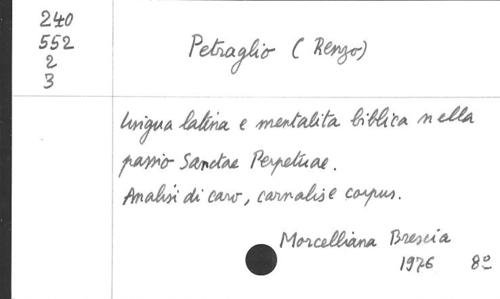 240
552
2
3
Petraglio (Renzo)
lingua latina e mentalita biblica nella
passio Sanctae Perpetuae.
Analisi di caro, carnalis e corpus.
Morcelliana Brescia
1976 8°